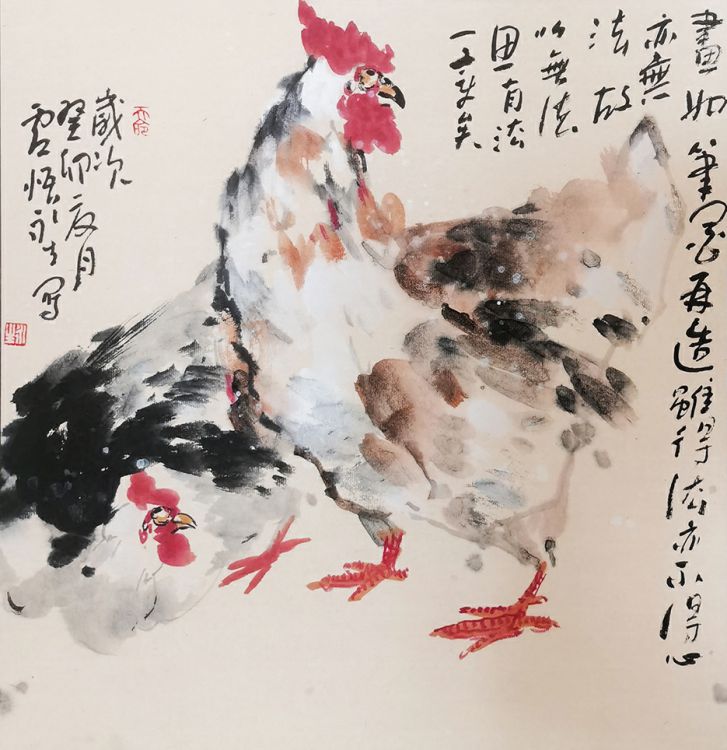 畫如筆墨再造雖得法亦不得心
亦無
法故
以無法
有法
一矣
歲次
癸卯夏月
悟永生寫